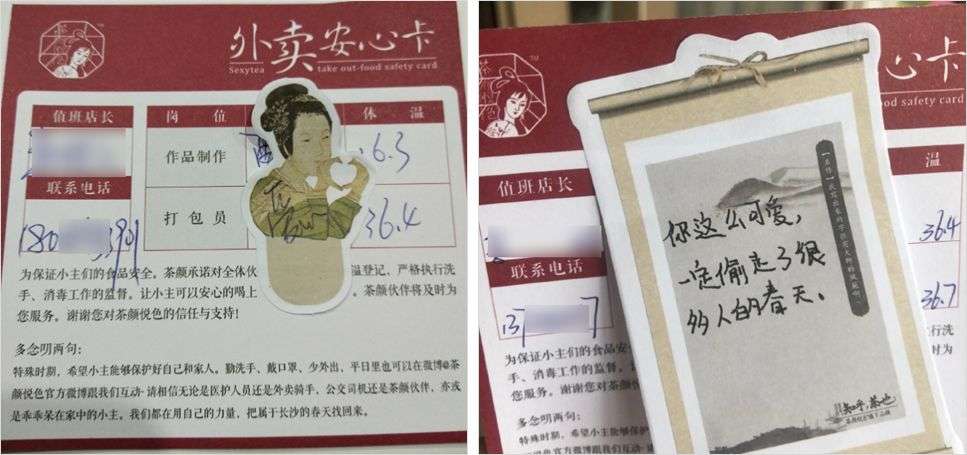 外卖安心卡
Sexytea take out-food safety card
值班店长
岗位
体温
作品制作
6.3
联系电话
打包员
36.4
为保证小主们的食品安全。茶颜承诺对全体伙
温登记、严格执行洗
手、消毒工作的监督。让小主可以安心的喝上
茶颜伙伴将及时为
您服务。谢谢您对茶颜悦色的信任与支持!
多念叨两句:
特殊时期,希望小主能够保护好自己和家人。勤洗手、戴口罩、少外出、平日里也可以在微博@茶
颜悦色官方微博跟我们互动~请相信无论是医护人员还是外卖骑手、公交司机还是茶颜伙伴、亦或
是乖乖呆在家中的小主。我们都在用自己的力量,把属于长沙的春天找回来。
心卡
od safety card
值班店长
温
联系电话
36.4
36.7
你这么可爱,
一定偷走了很
多人的春天、
知乎,茶也
为保证小主们的食品
行洗
手、消毒工作的监
时为
您服务。谢谢您对
多念叨两句:
特殊时期,希望小主能够保
颜悦色官方微博跟我们互动~
是乖乖呆在家中的小主。我